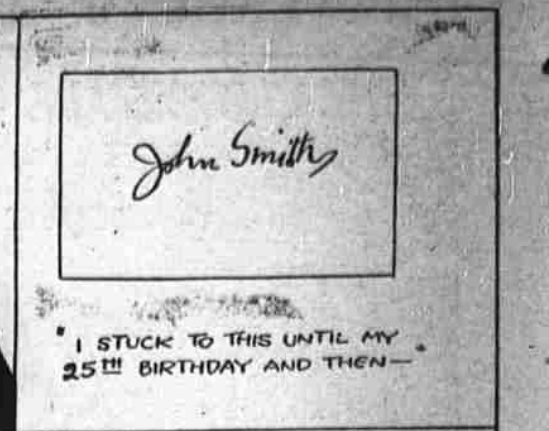 John Smith
"I STUCK TO THIS UNTIL MY
25TH BIRTHDAY AND THEN—"